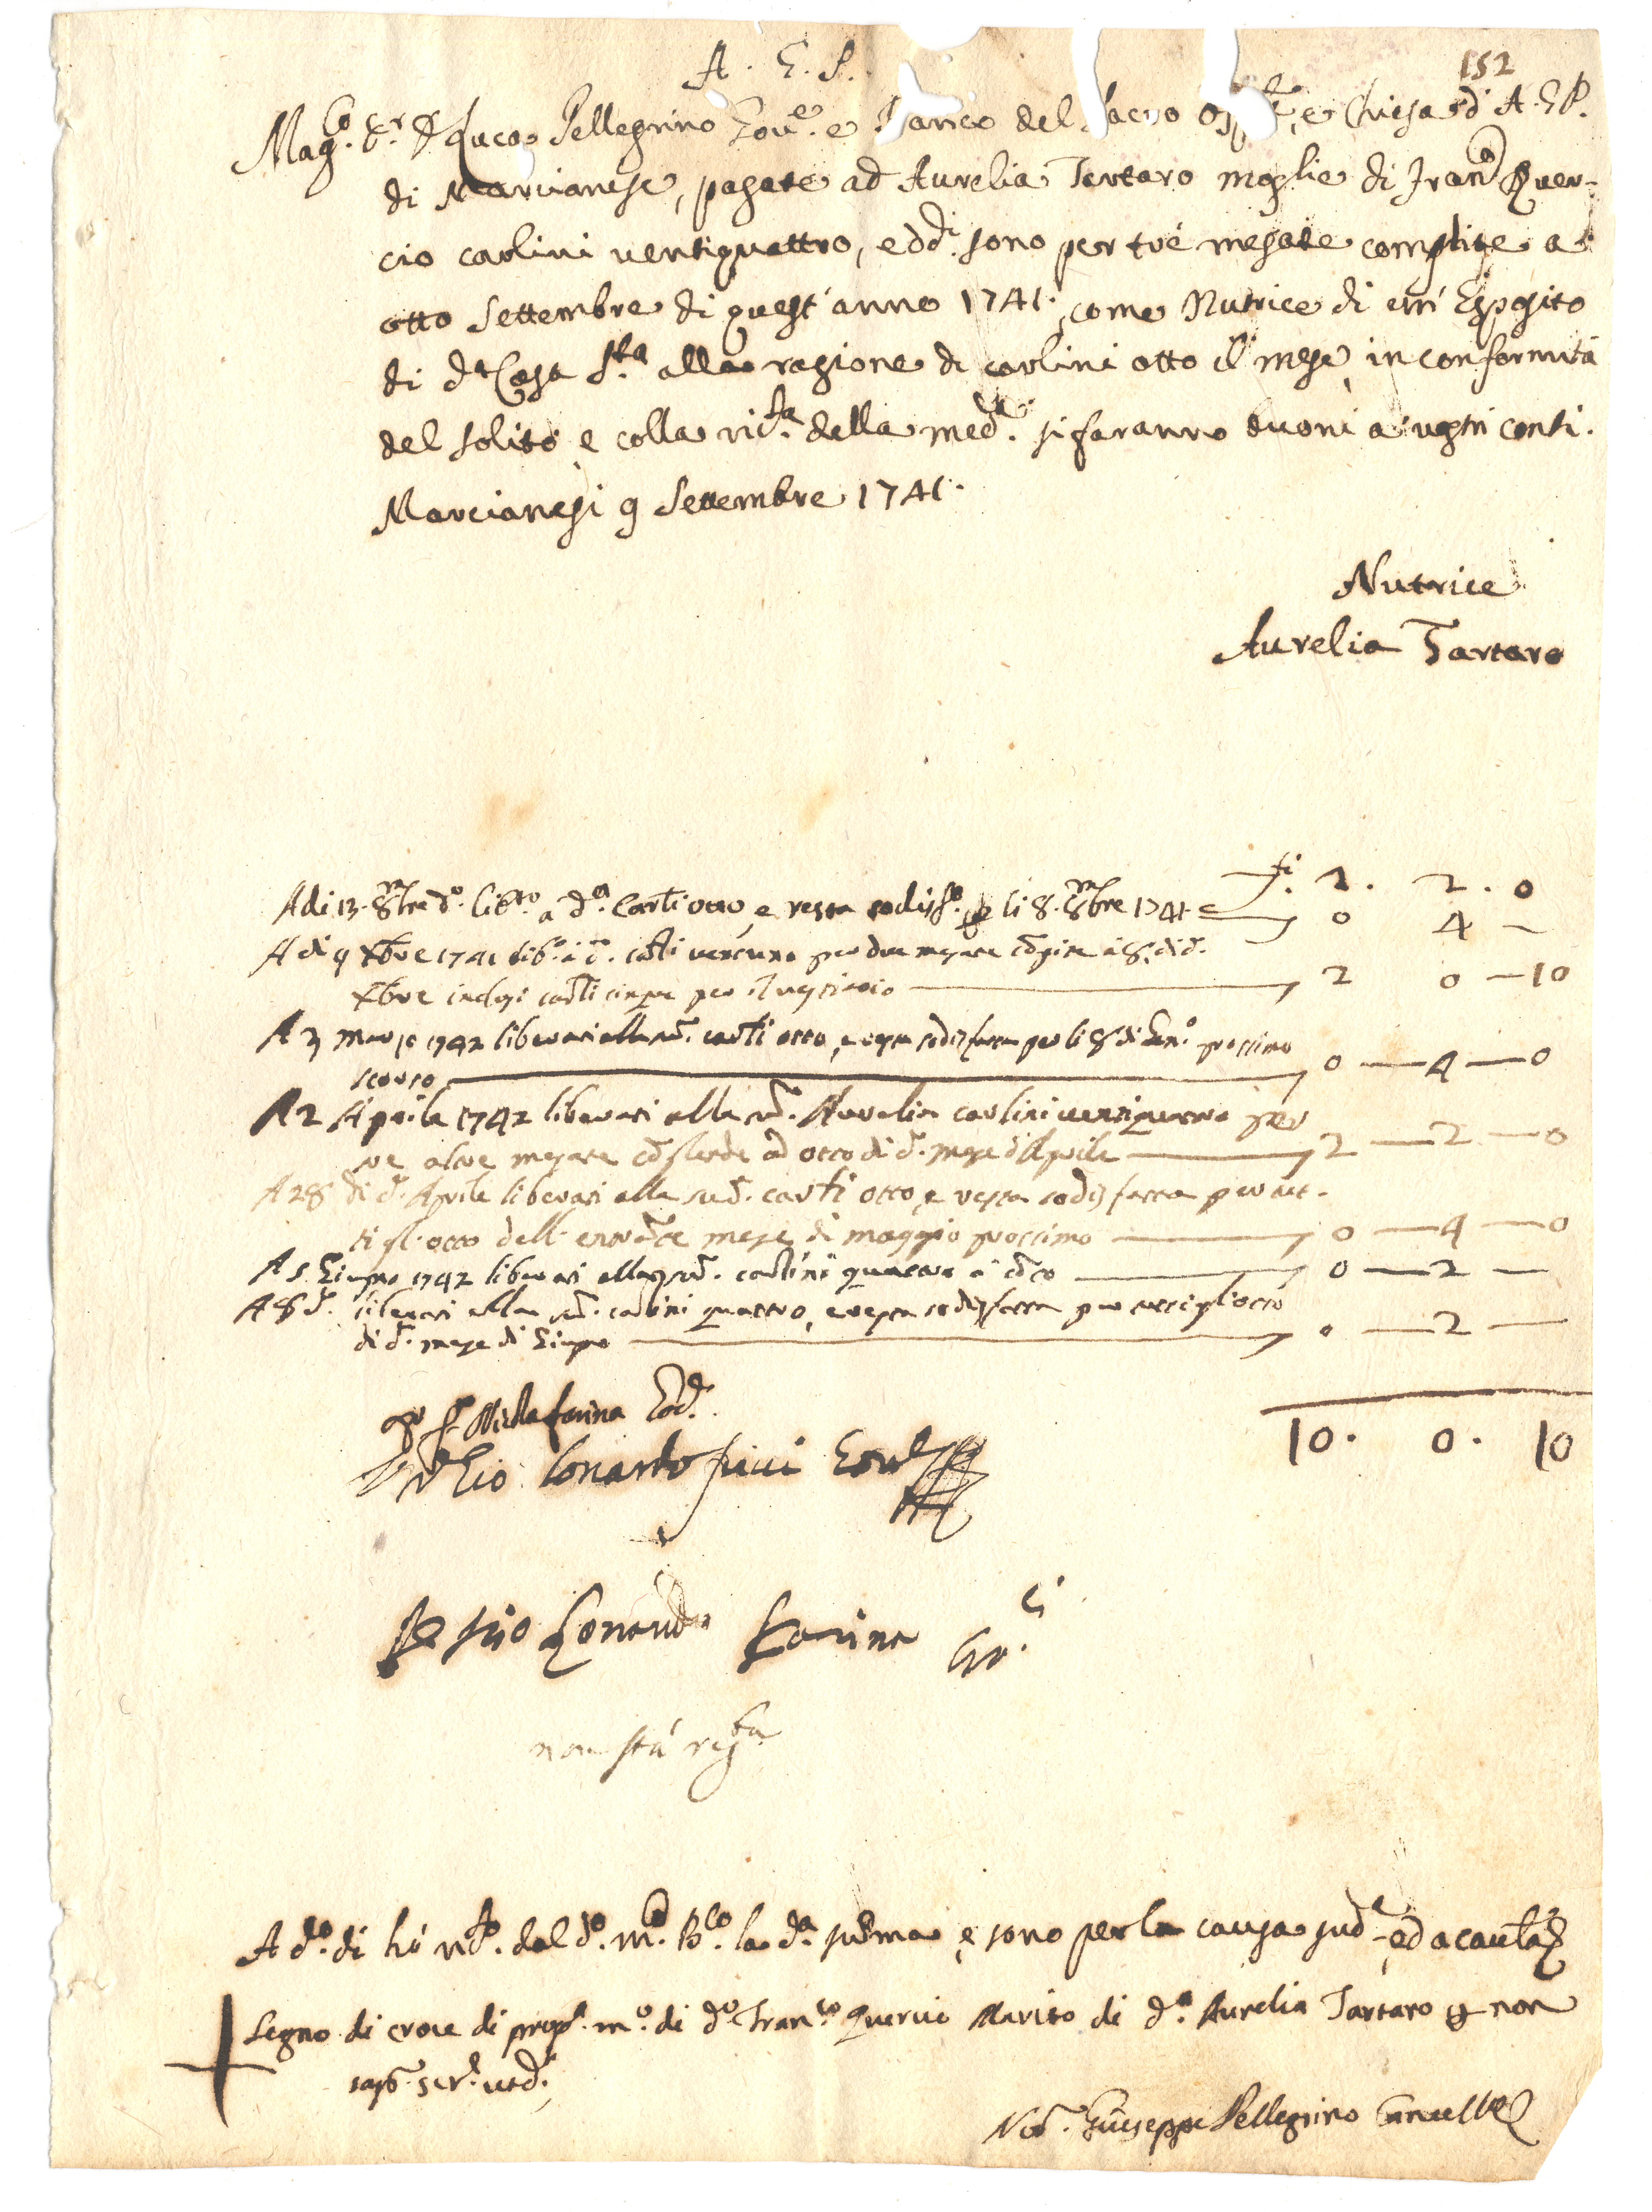 A. G. P.
152
Mag.co S.r D. Luca Pellegrino Gov.e e Banco del Sacro Osp.le, e Chiesa d'A.G.P.
di Marcianese, pagate ad Aurelia Tartaro moglie di Fran.co Quer-
cio carlini ventiquattro, edd.i sono per tré mesate complite a
otto Settembre di quest'anno 1741. come Nutrice di un'Esposito
di d.a Casa S.ta alla ragione di carlini otto il mese in conformità
del solito, e colla ric.ta della med.a si faranno buoni a' vostri conti.
Marcianesi 9 Settembre 1741.
Nutrice
Aurelia Tartaro
Adi 13. 8bre d.o lib.to a d.a Carl.i otto, e resta sodisf.a p li 8. 8bre 1741 2. 2. 0
0 4 -
A di 9 Xbre 1741 lib.o a d. carl.i ventuno per due mesate co͂pite a 8. di d.
Xbre inclusi carl.i cinque per il vestiario 2 0 - 10
A 3 Marzo 1742 liberati alla sud. carl.i otto, e resta sodisfatta per li 8 di Gen.o prossimo
scorso 0 - 4 - 0
A 2 Aprile 1742 liberati alla sud. Aurelia carlini ventiquattro per
tre altre mesate ad otto di d. mese d'Aprile 2 - 2 - 0
A 28 di d. Aprile liberati alla sud. carl.i otto, e resta sodisfatta per tut-
ti gl'otto dell'entrante mese di maggio prossimo 0 - 4 - 0
A 5 Giugno 1742 liberati alla sud. carlini quattro a co͂to 0 - 2 -
A 8 d. liberati alla sud. carlini quattro, e resta sodisfatta per tutti gli otto
di d. mese di Giugno 0 - 2 -
10. 0. 10
Nicola Farina Gov.
Lonardo Gov.
Lonardo Farina
non stà reg.ta
A d.o di hò ric.to dal d.o m.co B.co la d.a summa e sono per la causa sud.a ed a cautela
Segno di croce di prop.a m.o di d.o Fran.co Quercio Marito di d.a Aurelia Tartaro p non
saper scr.e ut d.
Not. Giuseppe Pellegrino Cancell.e